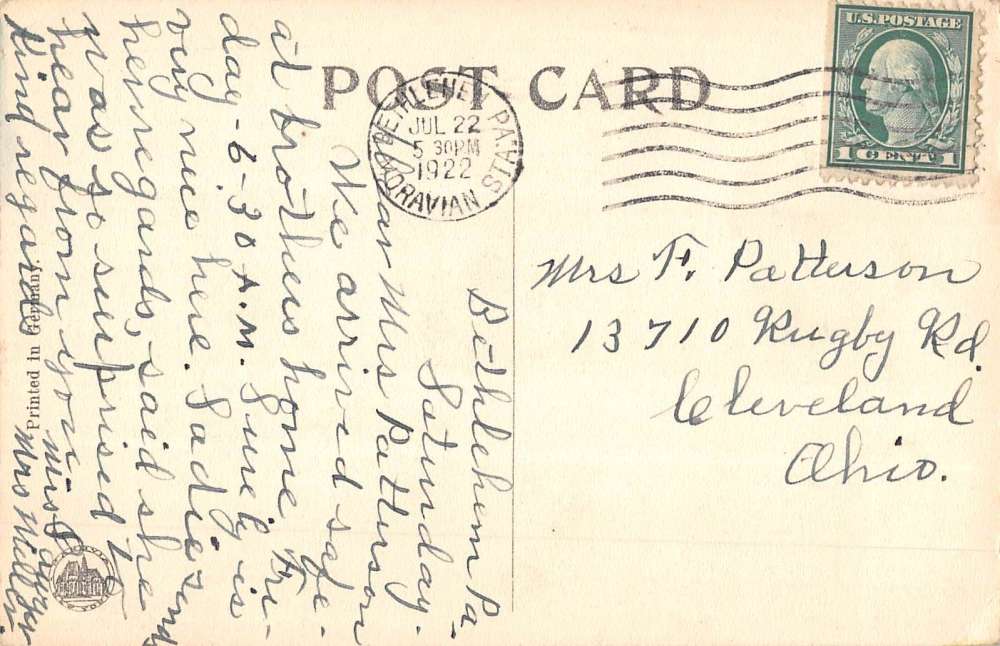 POST CARD
U.S. POSTAGE
1 CENT 1
BETHLEHEM PA. HTS. STA.
JUL 22
5 30 PM
1922
MORAVIAN
Bethlehem Pa-
Saturday.
Dear Mrs Patterson
We arrived safe
at brothers home Fri-
day - 6-30 A.M. Surely is
very nice here. Sadie send
her regards, said she
was so suprised to
hear from you.
Kind regards
Miss
Mrs
Mrs F. Patterson
13710 Rugby Rd.
Cleveland
Ohio.
Printed in Germany.